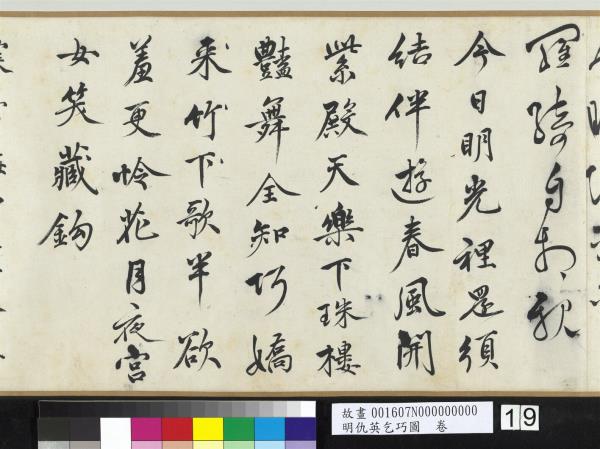 羅綺自相親
今日明光裡還須
結伴遊春風開
紫殿天樂下珠樓
豔舞全知巧嬌
来竹下歌半欲
羞更怜花月夜宮
女笑藏鈎
故畫 001607N000000000
明仇英乞巧圖 卷
19